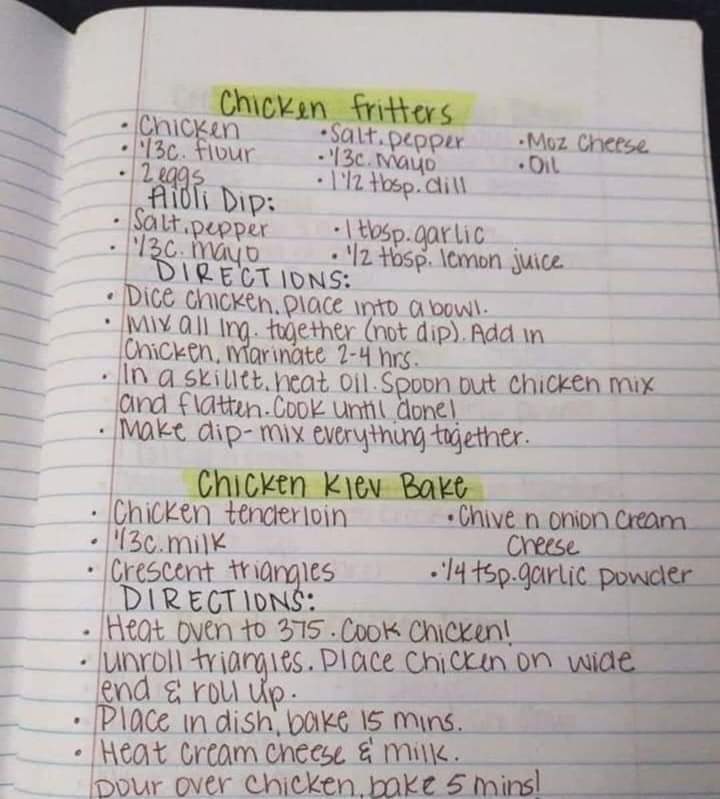 Chicken fritters
• Chicken • Salt. pepper • Moz cheese
• 1/3c. flour • 1/3c. mayo • Oil
• 2 eggs • 1 1/2 tbsp. dill
Aioli Dip:
• Salt. pepper • 1 tbsp. garlic
• 1/3c. mayo • 1/2 tbsp. lemon juice
DIRECTIONS:
• Dice chicken. place into a bowl.
• Mix all ing. together (not dip). Add in
chicken. marinate 2-4 hrs.
• In a skillet. heat oil. Spoon out chicken mix
and flatten. Cook until done!
• Make dip- mix everything together.
Chicken Kiev Bake
• Chicken tenderloin • Chive n onion cream
• 1/3c. milk cheese
• Crescent triangles • 1/4 tsp. garlic powder
DIRECTIONS:
• Heat oven to 375. Cook chicken!
• Unroll triangles. Place chicken on wide
end & roll up.
• Place in dish, bake 15 mins.
• Heat cream cheese & milk.
Pour over chicken, bake 5 mins!